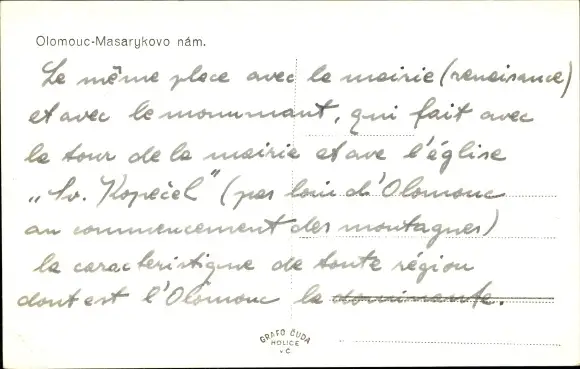 Olomouc-Masarykovo nám.
Le même place avec la mairie (renaisance)
et avec le monumant, qui fait avec
la tour de la mairie et ave l'église
„Sv. Kopeček" (pas loin d'Olomouc
au commencement des montagnes)
la caracteristique de toute région
dont est l'Olomouc la dominante.
GRAFO ČUDA
HOLICE
v Č